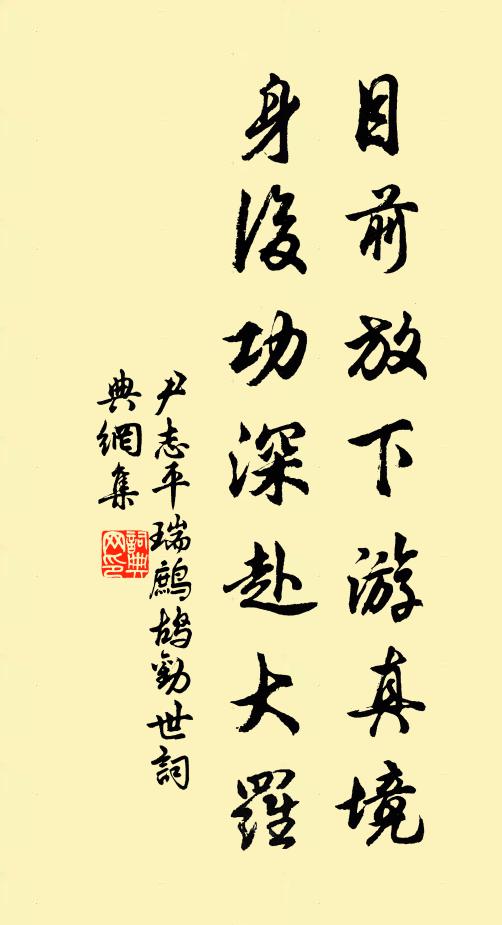 目前放下游真境
身後功深赴大羅
尹志平瑞鷓鴣勸世詞
典網集
詞典网印